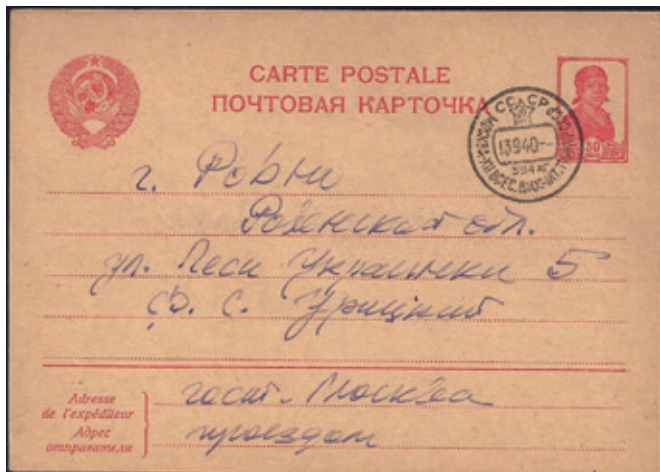 CARTE POSTALE
ПОЧТОВАЯ КАРТОЧКА
СССР
13 9 40
30
г. Ровно
Ровенская обл.
ул. Леси Украинки 5
Ф. С. Урицкий
Adresse
de l'expéditeur
Адрес
отправителя
гост. Москва
проездом